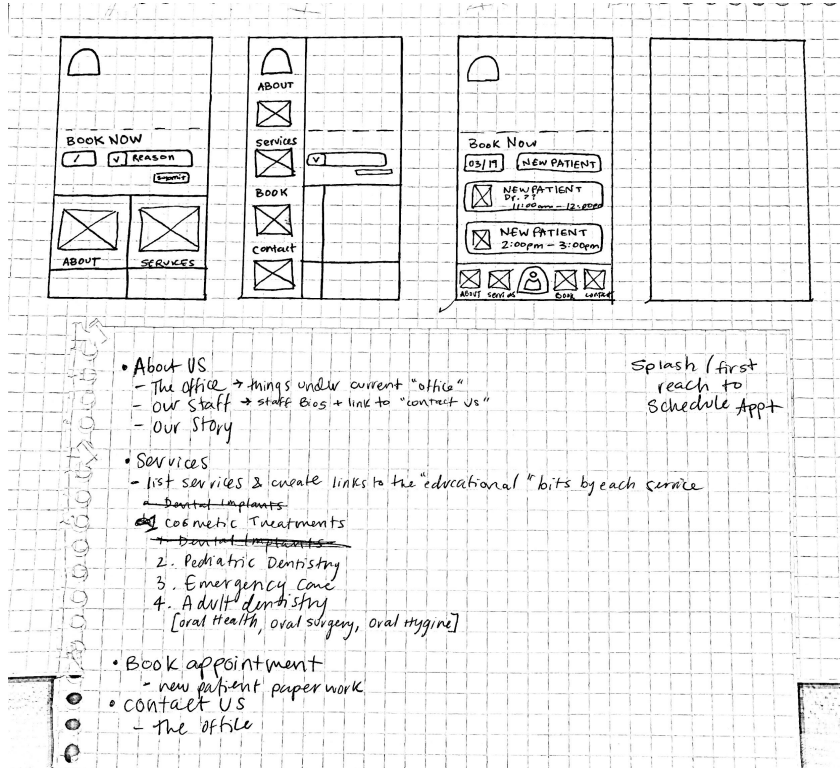 BOOK NOW
/
V Reason
Submit
ABOUT
SERVICES
ABOUT
Services
V
BOOK
Contact
Book Now
03/19
NEW PATIENT
NEW PATIENT
Dr. ??
11:00am - 12:00pm
NEW PATIENT
2:00pm - 3:00pm
ABOUT
Services
BOOK
contact
• About US
- The Office → things under current "office"
- Our Staff → staff Bios + link to "contact us"
- Our Story
Splash / first
reach to
Schedule Appt
• Services
- list services & create links to the "educational" bits by each service
Dental Implants
1 Cosmetic Treatments
Dental Implants
2. Pediatric Dentistry
3. Emergency Care
4. Adult dentistry
[oral Health, oral surgery, oral Hygine]
• Book appointment
- new patient paperwork
• contact us
- The office